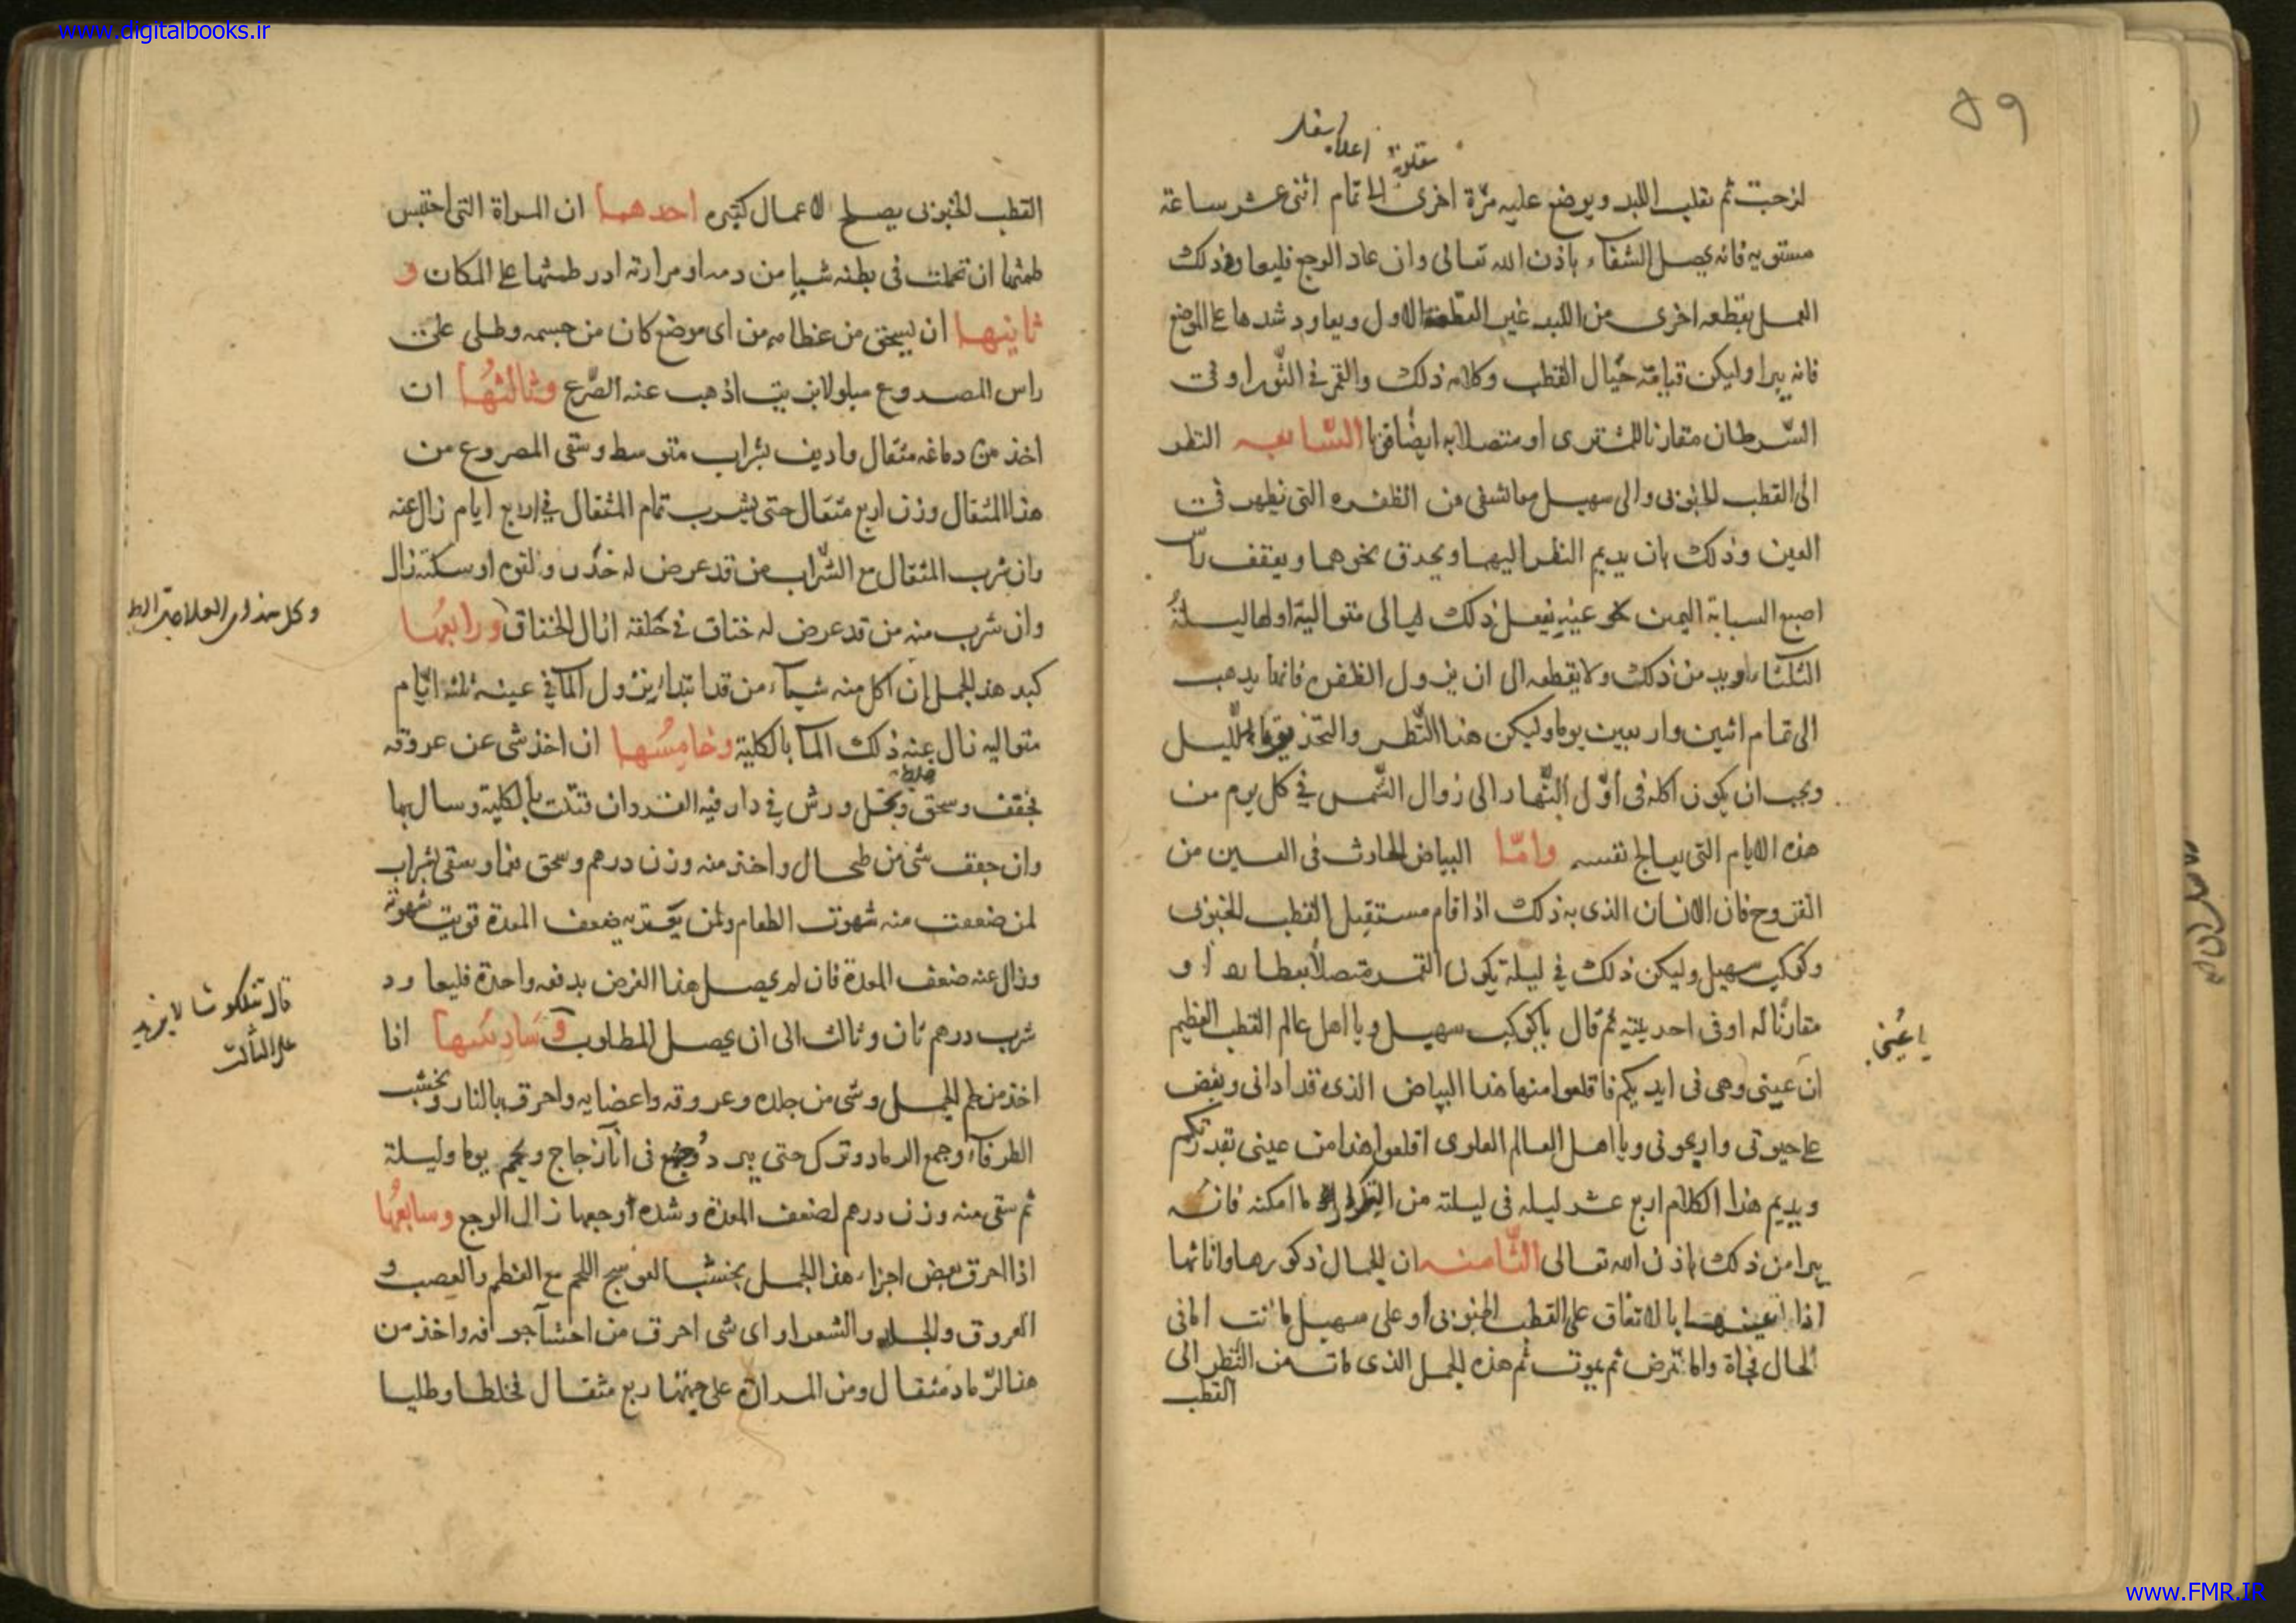 www.digitalbooks.ir
٥٩
مقلوبة
لزجت ثم تقلب اللبد ويوضع عليه مرّة اخرى الى تمام اثنى عشر ساعة
مستويه فانه يصل الشفاء باذن الله تعالى وان عاد الوجع فليعاود ذلك
العمل بقطعه اخرى من اللبد غير القطعة الاول ويعاود شدها على الموضع
فانه يبرا وليكن قيامة حيال القطب وكلامه ذلك والقمر فى الثور او فى
السّرطان مقارنا للمشترى او متصلا به ايضا السّابعه النظر
الى القطب الجنوبى والى سهيل معا تشفى من الظفره التى تظهر فى
العين وذلك بان يديم النظر اليهما ويحدق نحوهما ويقف راس
اصبع السبابة اليمنى نحو عينيه يفعل ذلك ليالى متوالية اولها ليلة
الثلثاء من ذلك ولا يقطعه الى ان يزول الظفره فانها يذهب
الى تمام اثنين واربعين يوما وليكن هذا النّظر والتحذيق بالليل
ويجب ان يكون اكله فى اوّل النّهار الى زوال الشّمس فى كل يوم من
هذه الايام التى يعالج نفسه وامّا البياض الحادث فى العين من
القروح فان الانسان الذى به ذلك اذا قام مستقبل القطب الجنوبى
وكوكب سهيل وليكن ذلك فى ليلة يكون القمر متصلا بعطارد او
مقارنا له او فى احد بيتيه ثم قال يا كوكب سهيل ويا اهل عالم القطب العظيم
يا عينى
ان عينى وهى فى ايديكم فاقلعوا منها هذا البياض الذى قد اذانى وبغض
على حيوتى واريحونى ويا اهل العالم العلوى اقلعوا هذا من عينى بقدرتكم
ويديم هذا الكلام اربع عشر ليله فى ليلته من التكرار ما امكنه فانه
يبرا من ذلك باذن الله تعالى الثّامنه ان الجمال ذكورها واناثها
اذا عينها بالاتفاق على القطب الجنوبى او على سهيل ماتت اما فى
الحال فجاة واما تمرض ثم يموت ثم هذه الجمل الذى مات من النّظر الى
القطب
القطب الجنوبى يصلح لاعمال كثيره احدهما ان المراة التى احتبس
طمثها ان تحملت فى بطنه شيا من دمه او مرارته ادر طمثها على المكان و
ثانيها ان يسحق من عظامه من اى موضع كان من جسمه وطلى على
راس المصدوع مبلولا بزيت اذهب عنه الصّرع وثالثها ان
اخذ من دماغه مثقال واديف بشراب متوسط وسقى المصروع من
هذا المثقال وزن اربع مثقال حتى يشرب تمام المثقال فى اربع ايام زال عنه
وان شرب المثقال مع الشّراب من قد عرض له خدر ولقوه او سكته زال
وكل هذه
وان شرب منه من قد عرض له خناق فى حلقه ازال الخناق ورابعها
كبد هذ الجمل ان اكل منه شياء من قد ابتداء نزول الما فى عينه ثلثه ايّام
متواليه زال عنه ذلك الما بالكلية وخامسها ان اخذ شى عن عروقه
فجفف وسحق ونخل ورش فى دار فيه الفر وان قتلت بالكلية وسال بها
وان جفف شى من طحال واخذ منه وزن درهم وسحق وسقى بشراب
لمن ضعفت منه شهوت الطعام ولمن يعتريه ضعف المعدة قويت شهوته
وزال عنه ضعف المعدة فان لم يصل هذا الغرض بدفعه واحدة فليعاود
قال تنكلوشا لا يزيد
على الثالث
شرب درهم ثان وثالث الى ان يصل المطلوب وسادسها اذا
اخذ من لحم الجمل وشى من جلده وعروقه واعضايه واحرق بالنار بخشب
الطرفاء وجمع الرماد وترك حتى يبرد وجمع فى اناء زجاج ويختم يوما وليلة
ثم سقى منه وزن درهم لضعف المعدة وشده اوجعها زال الوجع وسابعها
اذا احرق بعض اجزاء هذا الجمل بخشب العوسج اللحم مع العظم والعصب و
العروق والجلد والشعر او اى شى احرق من احشاء جوافه واخذ من
هذا الرّماد مثقال ومن المرارة على جهتها ربع مثقال فخلطا وطليا
www.FMR.IR